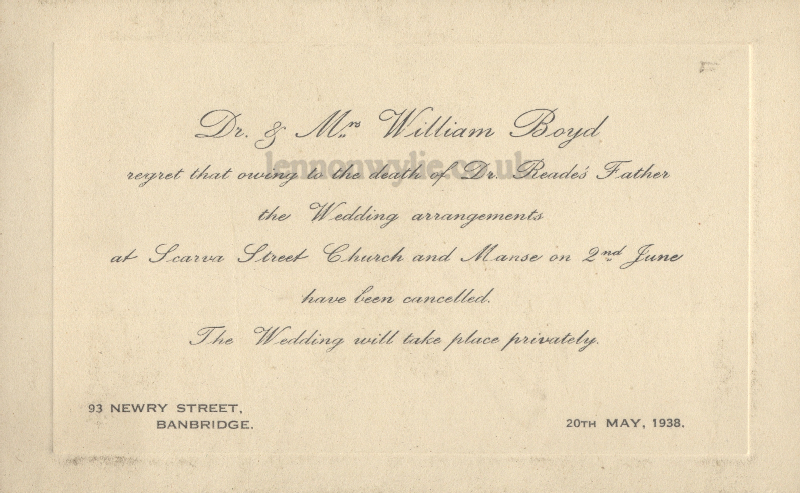 Dr. & Mrs William Boyd
lennonwylie.co.uk
regret that owing to the death of Dr. Reade's Father
the Wedding arrangements
at Scarva Street Church and Manse on 2nd June
have been cancelled.
The Wedding will take place privately.
93 NEWRY STREET,
BANBRIDGE.
20TH MAY, 1938.